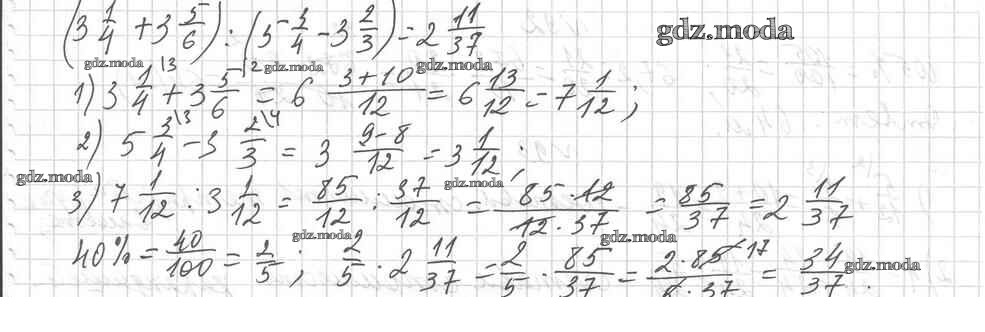 (3 1/4 + 3 5/6) : (5 3/4 - 3 2/3) = 2 11/37
gdz.moda
gdz.moda gdz.moda gdz.moda
1) 3 1/4\3 + 3 5/6\2 = 6 3+10/12 = 6 13/12 = 7 1/12 ;
2) 5 3/4\3 - 3 2/3\4 = 3 9-8/12 = 3 1/12 ;
gdz.moda gdz.moda
3) 7 1/12 : 3 1/12 = 85/12 : 37/12 = 85·12/12·37 = 85/37 = 2 11/37
gdz.moda gdz.moda
40% = 40/100 = 2/5 ; 2/5 : 2 11/37 = 2/5 · 85/37 = 2·85 17/5·37 = 34/37 .
gdz.moda